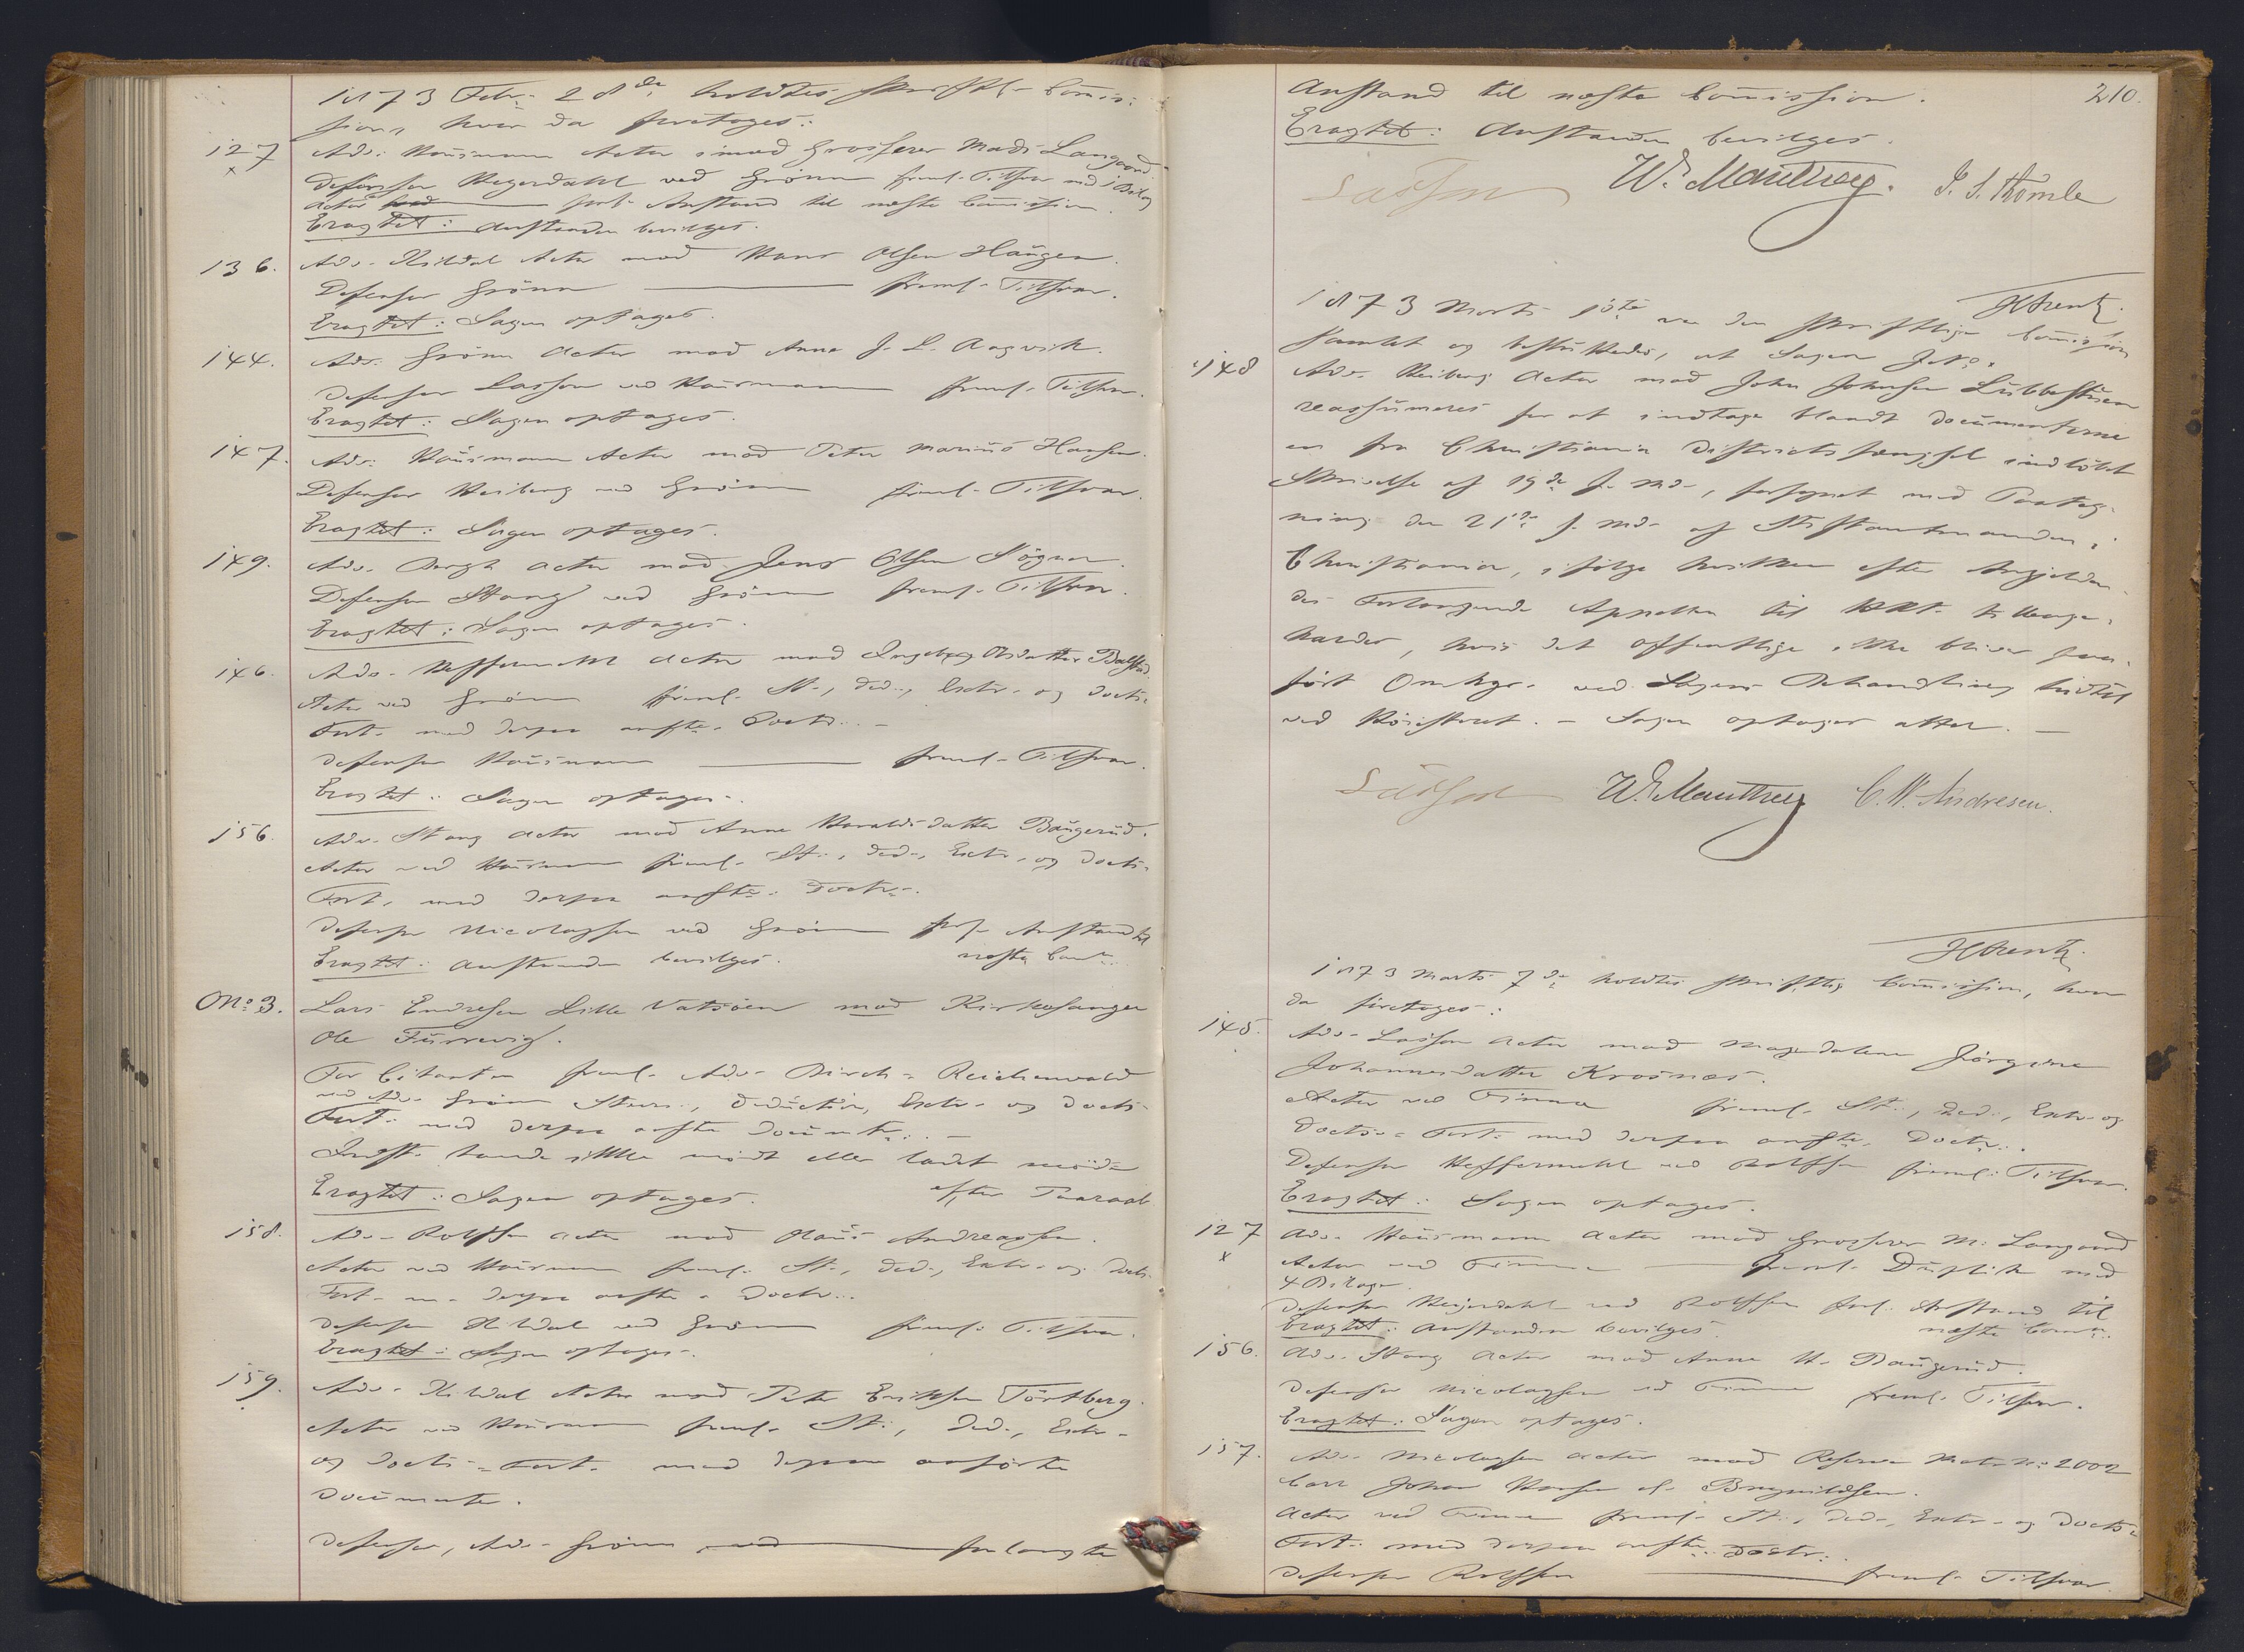 1873 Febr. 28de holdtes skriftl. Commis-
sion, hvor da foretoges:
127 Adv. Hausmann Actor imod Grosserer Mads Langaard.
x Defensor Heyerdahl ved Grönn freml. Tilsvar med 1 Bilag
Actor forl. Anstand til næste Commission.
Eragtet: Anstanden bevilges.
136. Adv. Kildal Actor mod Hans Olsen Haugen.
Defensor Grönn freml. Tilsvar.
Eragtet: Sagen optages.
144. Adv. Grönn Actor mod Anne J. L. Aagvik.
Defensor Lasson ved Hausmann freml. Tilsvar.
Eragtet: Sagen optages.
147. Adv. Hausmann Actor mod Peter Marius Hansen.
Defensor Heiberg ved Grönn freml. Tilsvar.
Eragtet: Sagen optages.
149. Adv. Bergh Actor mod Jens Olsen Sögnen.
Defensor Stang ved Grönn freml. Tilsvar.
Eragtet: Sagen optages.
146. Adv. Heffermehl Actor mod Ingeborg Olsdatter
Actor ved Grönn freml. St., Ded., Extr. og Docts.
Fort. med derpaa anfte. Doctr.
Defensor Hausmann freml. Tilsvar.
Eragtet: Sagen optages.
156. Adv. Stang Actor mod Anne Haraldsdatter Baugerud.
Actor ved Hausmann freml. St., Ded., Extr. og Docts.
Fort. med derpaa anfte. Doctr.
Defensor Nicolaysen ved Grönn forl. Anstand til
Eragtet: Anstanden bevilges. næste Comm.
No 3. Lars Endresen Lille Vatsöen mod Kirkesanger
Ole Furrevig.
For Citanten freml. Adv. Birch-Reichenwald
ved Adv. Grönn Stevn., Deduction, Extr. og Docts.
Fort. med derpaa anfte Documtr.
Indst. havde ikke mödt eller ladet möde
Eragtet: Sagen optages. efter Paaraab
158. Adv. Rolfsen Actor mod Claus Andreasen.
Actor ved Hausmann freml. St., Ded., Extr. og Docts.
Fort. m. derpaa anfte. Doctr.
Defensor Kildal ved Grönn freml. Tilsvar.
Eragtet: Sagen optages.
159. Adv. Kildal Actor mod Peter Eriksen Törtberg.
Actor ved Hausmann freml. St., Ded., Extr.
og Docts. Fort. med derpaa anförte
Documenter.
Defensor, Adv. Grönn forlangte
Anstand til næste Commission. 210.
Eragtet: Anstanden bevilges.
Lasson W. Manthey. J. S. Thomle
H Arentz.
1873 Marts 1ste var den skriftlige Commission
samlet og besluttedes, at Sagen J. No.
148 Adv. Heiberg Actor mod John Johnsen Lubbestuen
reassumeres for at indtage blandt Documenterne
en fra Christiania Districtsfængsel indlöbet
Skrivelse af 19de f. Md., forsynet med Paateg-
ning den 21de f. Md. af Stiftamtmanden i
Christiania, ifölge hvilken efter Angjelden-
des Forlangende Appellen til HRt. tilbage-
kaldes, hvis det Offentlige ikke bliver paa-
fört Omkgr. ved Sagens Behandling hidtil
ved Höiesteret. — Sagen optages atter. —
Lasson W. Manthey C. W. Andresen.
H Arentz.
1873 Marts 7de holdtes skriftlig Commission, hvor
da foretoges:
145. Adv. Lasson Actor mod Magdalene Jörgine
Johannesdatter Krosnæs.
Actor ved Finne freml. St., Ded., Extr. og
Docts. Fort. med derpaa anfte. Doctr.
Defensor Heffermehl ved Rolfsen freml. Tilsvar.
Eragtet: Sagen optages.
127 Adv. Hausmann Actor mod Grosserer M. Langaard
x Actor ved Finne freml. Duplik med
4 Bilage.
Defensor Heyerdahl ved Rolfsen forl. Anstand til
Eragtet: Anstanden bevilges. næste Comm.
156. Adv. Stang Actor mod Anne H. Baugerud.
Defensor Nicolaysen ved Finne freml. Tilsvar.
Eragtet: Sagen optages.
157. Adv. Nicolaysen Actor mod Reserve Matr. No. 2002
Carl Johan Hansen el. Brynildsen.
Actor ved Finne freml. St., Ded., Extr. og Docts.
Fort. med derpaa anfte. Doctr.
Defensor Rolfsen freml. Tilsvar.